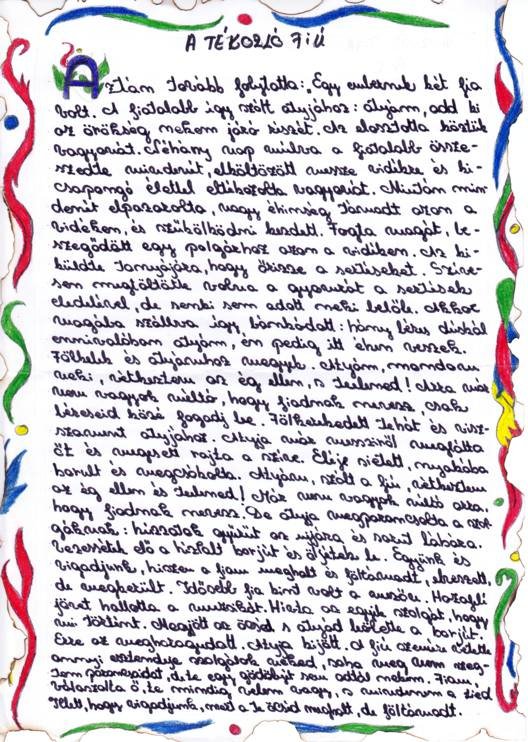 A TÉKOZLÓ FIÚ
Aztám tovább folytatta: „Egy embernek két fia
volt. A fiatalabb így szólt atyjához: atyám, add ki
az örökség nekem járó részét. Az elosztotta köztük
vagyonát. Néhány nap múlva a fiatalabb össze-
szedte mindenét, elköltözött messze vidékre és ki-
csapongó élettel eltékozolta vagyonát. Miután min-
denét elpazarolta, nagy éhínség támadt azon a
vidéken, és szűkölködni kezdett. Fogta magát, be-
szegődött egy polgárhoz azon a vidéken. Az ki-
küldte tanyájára, hogy őrizze a sertéseket. Szíve-
sen megtöltötte volna a gyomrát a sertések
eledelével, de senki sem adott neki belőle. Akkor
magába szállva így bánkódott: hány béres dúskál
ennivalóban atyám, én pedig itt éhen veszek.
Fölkelek és atyámhoz megyek. Atyám, mondom
neki, vétkeztem az ég ellen, s teellened! Arra már
nem vagyok méltó, hogy fiadnak nevezz, csak
béreseid közé fogadj be. Fölkerekedett tehát és visz-
szament atyjához. Atyja már messziről meglátta
őt és megesett rajta a szíve. Eléje sietett, nyakába
borult és megcsókolta. Atyám, szólt a fiú, vétkeztem
az ég ellen és teellened! Már nem vagyok méltó arra,
hogy fiadnak nevezz. De atyja megparancsolta a szol-
gáknak: húzzatok gyűrűt az ujjára és sarut lábára.
Vezessétek elő a hízlalt borjút és öljétek le. Együnk és
vigadjunk, hiszen a fiam meghalt és föltámadt, elveszett,
de megkerült. Idősebb fia kint volt a mezőn. Hazafelé
jövet hallotta a muzsikát. Hívta az egyik szolgát, hogy
mi történt. Megjött az öcséd s atyád leölette a borjút.
Erre az megharagudott. Atyja kijött. A fiú szemére vetette
annyi esztendeje szolgálok neked, soha meg nem szeg-
tem parancsodat, de te egy gödölyét sem adtál nekem. Fiam,
válaszolta ő, te mindig velem vagy, s mindenem a tied
Illett, hogy vigadjunk, mert a te öcséd meghalt, de föltámadt.